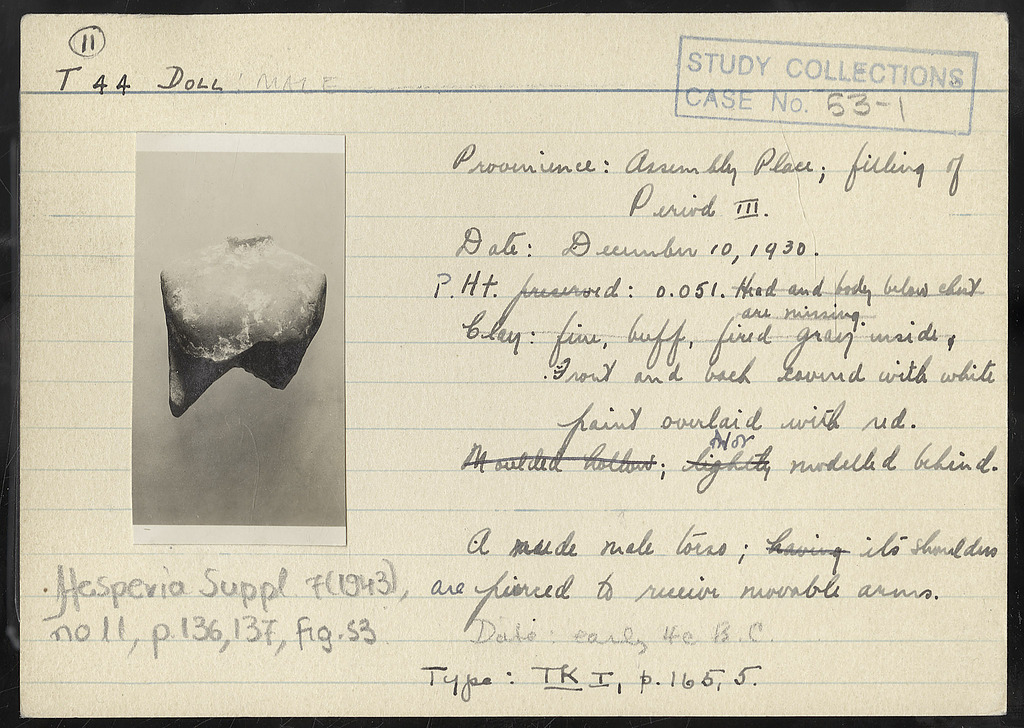 11
T 44 DOLL: MALE
STUDY COLLECTIONS
CASE No. 53-1
Provinience: Assembly Place; filling of
Period III.
Date: December 10, 1930.
P. Ht. preserved: 0.051. Head and body below chest
are missing
Clay: fine, buff, fired gray inside,
Front and back covered with white
paint overlaid with red.
Not
Moulded hollow; lightly modelled behind.
A nude male torso; having its shoulders
are pierced to receive movable arms.
Date: early 4c B.C.
Type: TK I, p. 165, 5.
Hesperia Suppl 7 (1943),
no 11, p. 136, 137, fig. 53